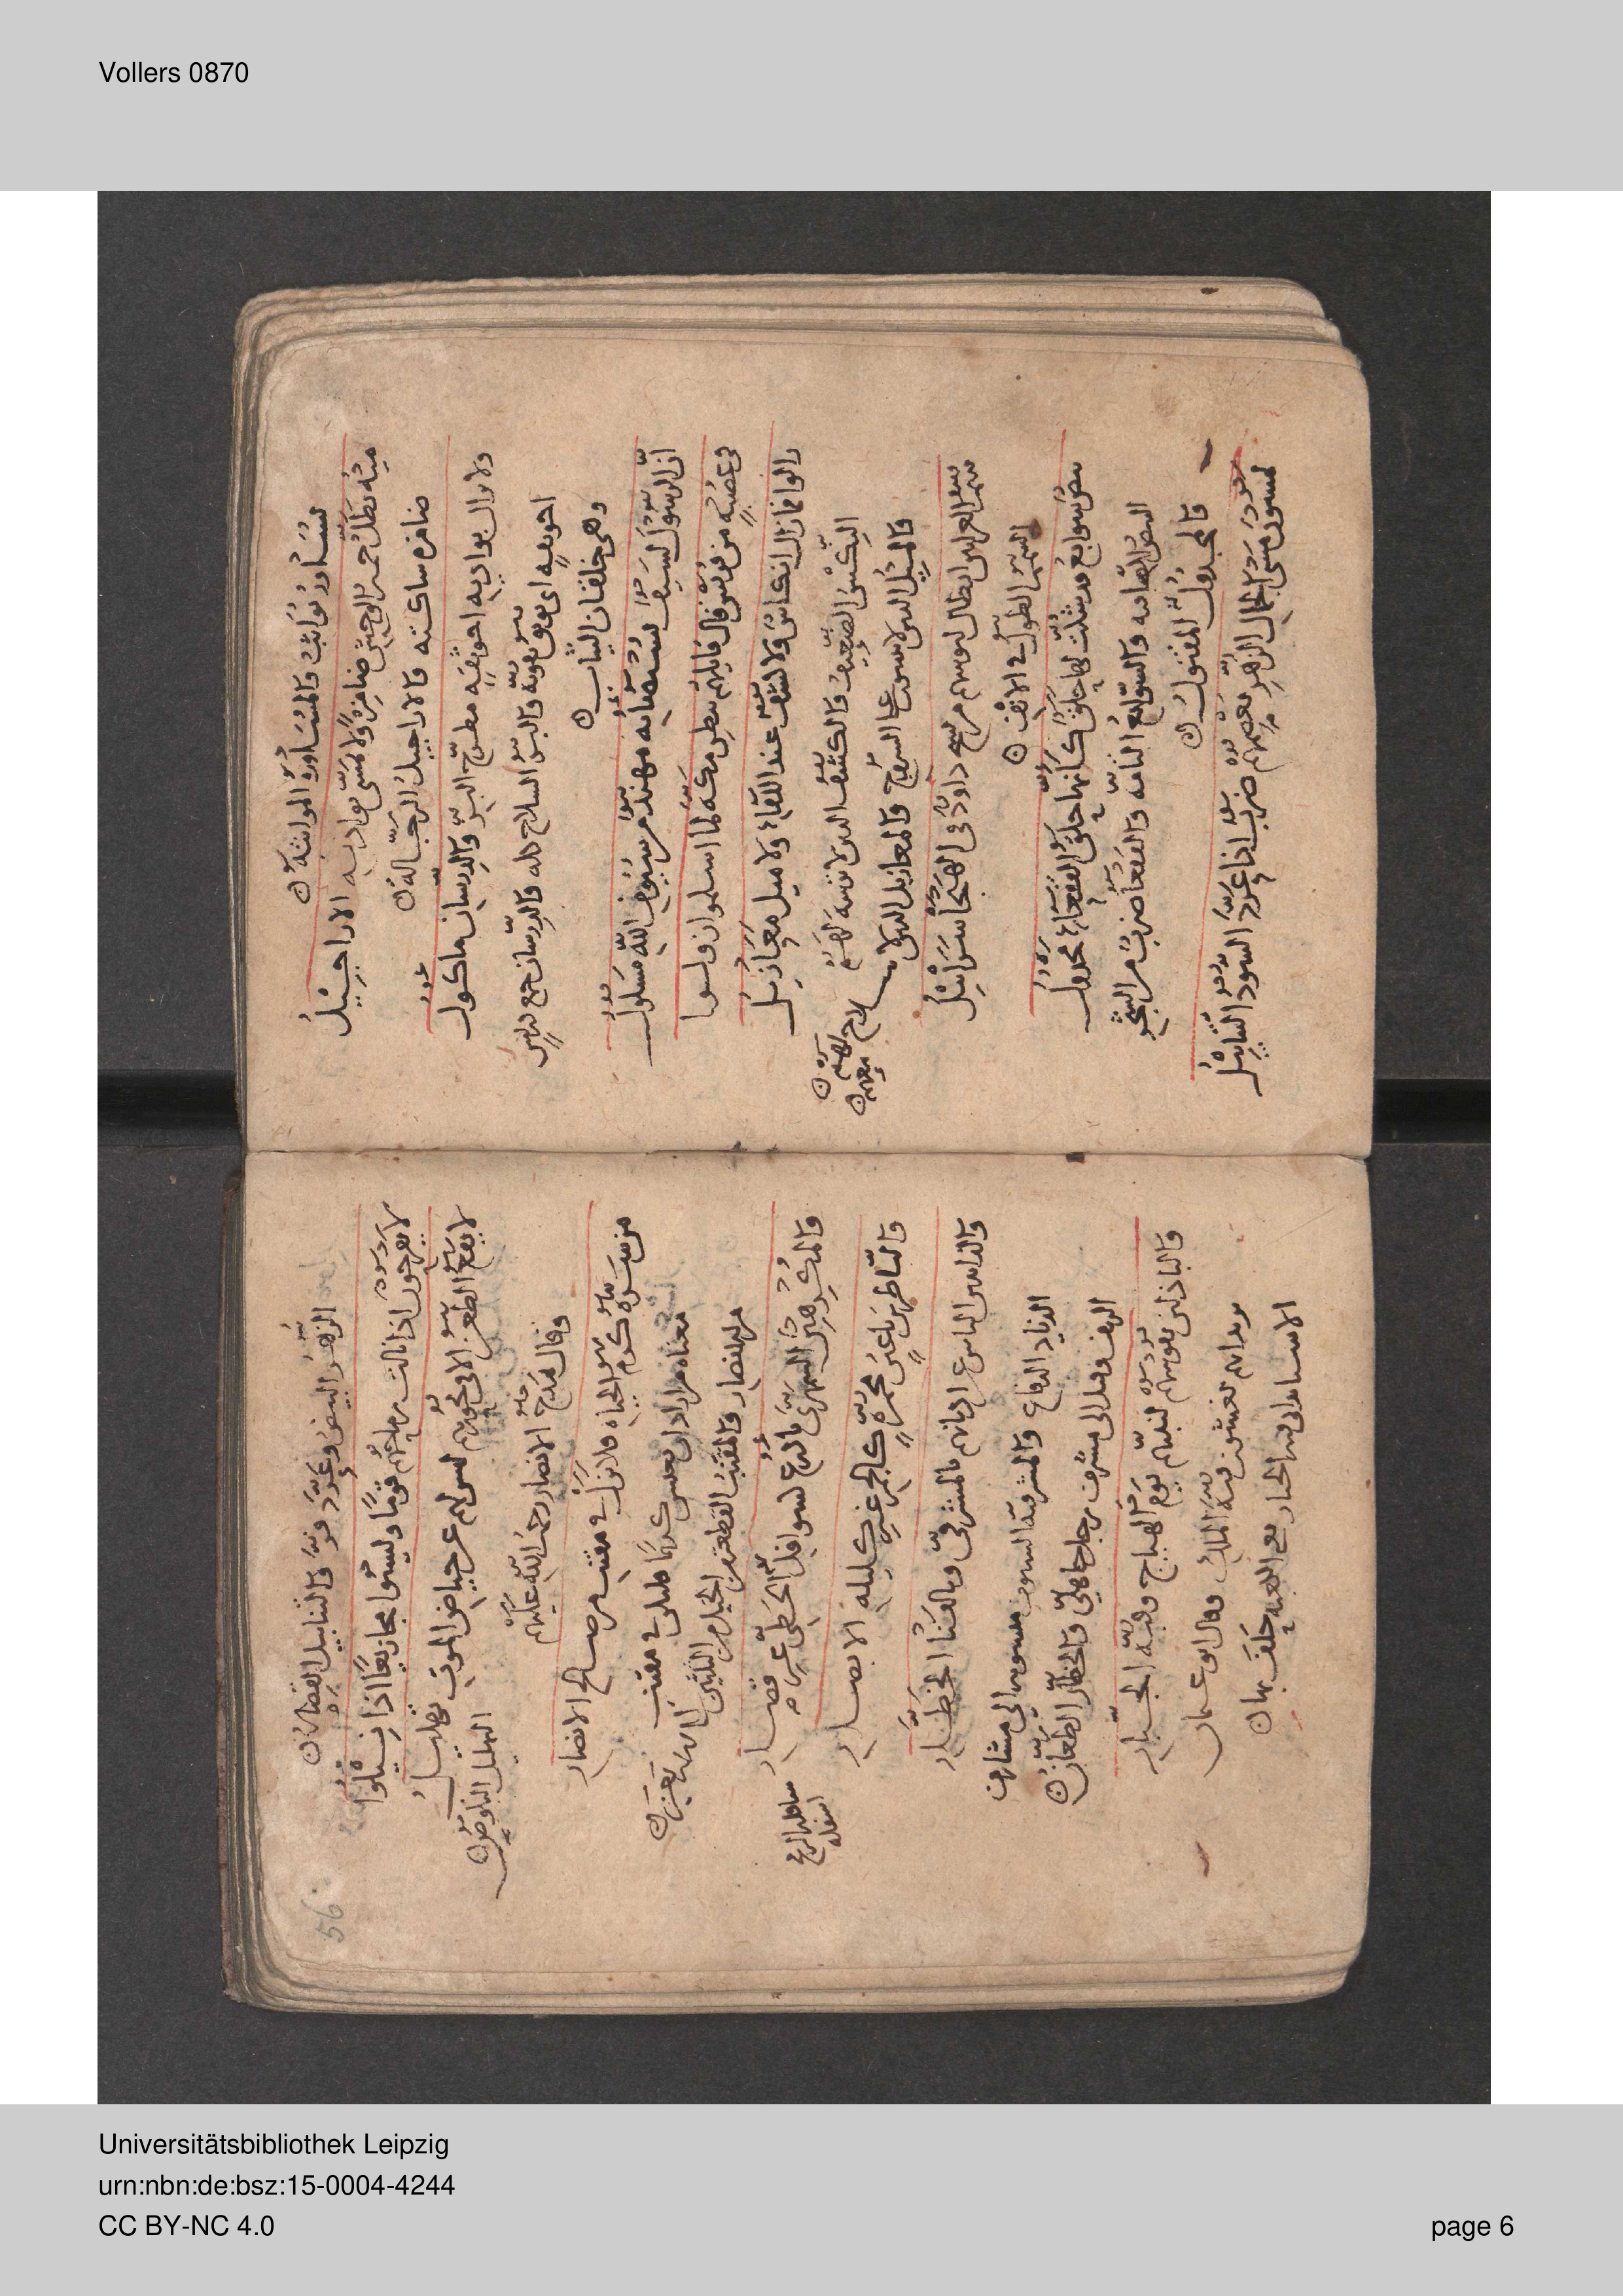 Vollers 0870
يُسَاوِرُ يُوَاثِبُ والمُسَاوَرَةُ المواثبة
منه تظَلُّ حَميرُ الوحش ضامِزةً ولا تمَشّى بواديه الاراجيلُ
ضامزه ساكته والاراجيلُ الرجّاله
ولا يزال بواديه اخو ثِقَةٍ مطرّح البزّ والدِّرسان ماكول
اخو ثقهٍ اى يوثق بقوته والبزّ السلاح كله والدِّرسان جمع دريسٍ
وهى خلقان الثياب
انّ الرسولَ لَسيفٌ يُستضاء به مهندٌ من سيُوفِ الله مسلولُ
فى عُصْبةٍ من قريش قال قايلهم ببطن مكه لما اسلموا زولوا
زالوا فما زال انكاسٌ ولا كُشُفٌ عند اللقاء ولا ميل مَعَازيلُ
النِّكس الضعيف والكشف الذين لا ترسة لهم
والمِيل الذين لا يثبتون على السروج والمعازيل الذين لا سلاح لهم
معهم
شم العرانين ابطال لبوسهم من نسج داودَ فى الهيجا سَرَابيلُ
الشمم الطول فى الانف
بيضٌ سَوابغُ قد شُكّت لها حلقٌ كانها حلق القفعاءِ مجدولُ
البيض الصافيه والسّوابغ التامّه والقفعا ضربٌ من الشجر
والمجدول المفتول
يمشون مشىَ الجمال الزُّهرِ يعصمهم ضربٌ اذا عرّد السود التنابيلُ
56
الزُّهرُ البيض وعَرّد فرّ والتنابيل القصار
لا يفرحون اذا نالت رماحهُم قومًا وليسُوا مجازيعًا اذا نِيلُوا
لا يقع الطعن الا فى نحورهم ليس لهم عن حياض الموت تهليلُ
التهليل النكوص
وقال يمدح الانصار رحمة الله عليهم
من سَرّه كرم الحياه فلا يزلْ فى مقنب من صالح الانصار
معناه من اراد ان يعيش كريما فليكن فى مقنب
من الانصار والمقنب القطعة من الخيل من الثلثين
والمُكرِهِين السَّمهرىّ باذرُعٍ كسوافل الخطّى غير قصار
سافله الرمح اسفله
والنّاظرين باعين محمرّةٍ كالجمر غير كليله الابصار
والذايدين الناس عن اديانهم بالمشرفىّ وبالقَنا الخطّار
الذياد الدفاع والمشرفيّة السيوف منسوبه الى مشارف
الريف وقيل الى مشرف رجل جاهلىّ والخطّار الطعان
والباذلين نفوسهم لنبيّهم يومَ الهياج وقبّة الجبّار
يريد انهم وقال ابو
الجبار الكعبة حلف بها
Universitätsbibliothek Leipzig
urn:nbn:de:bsz:15-0004-4244
CC BY-NC 4.0
page 6